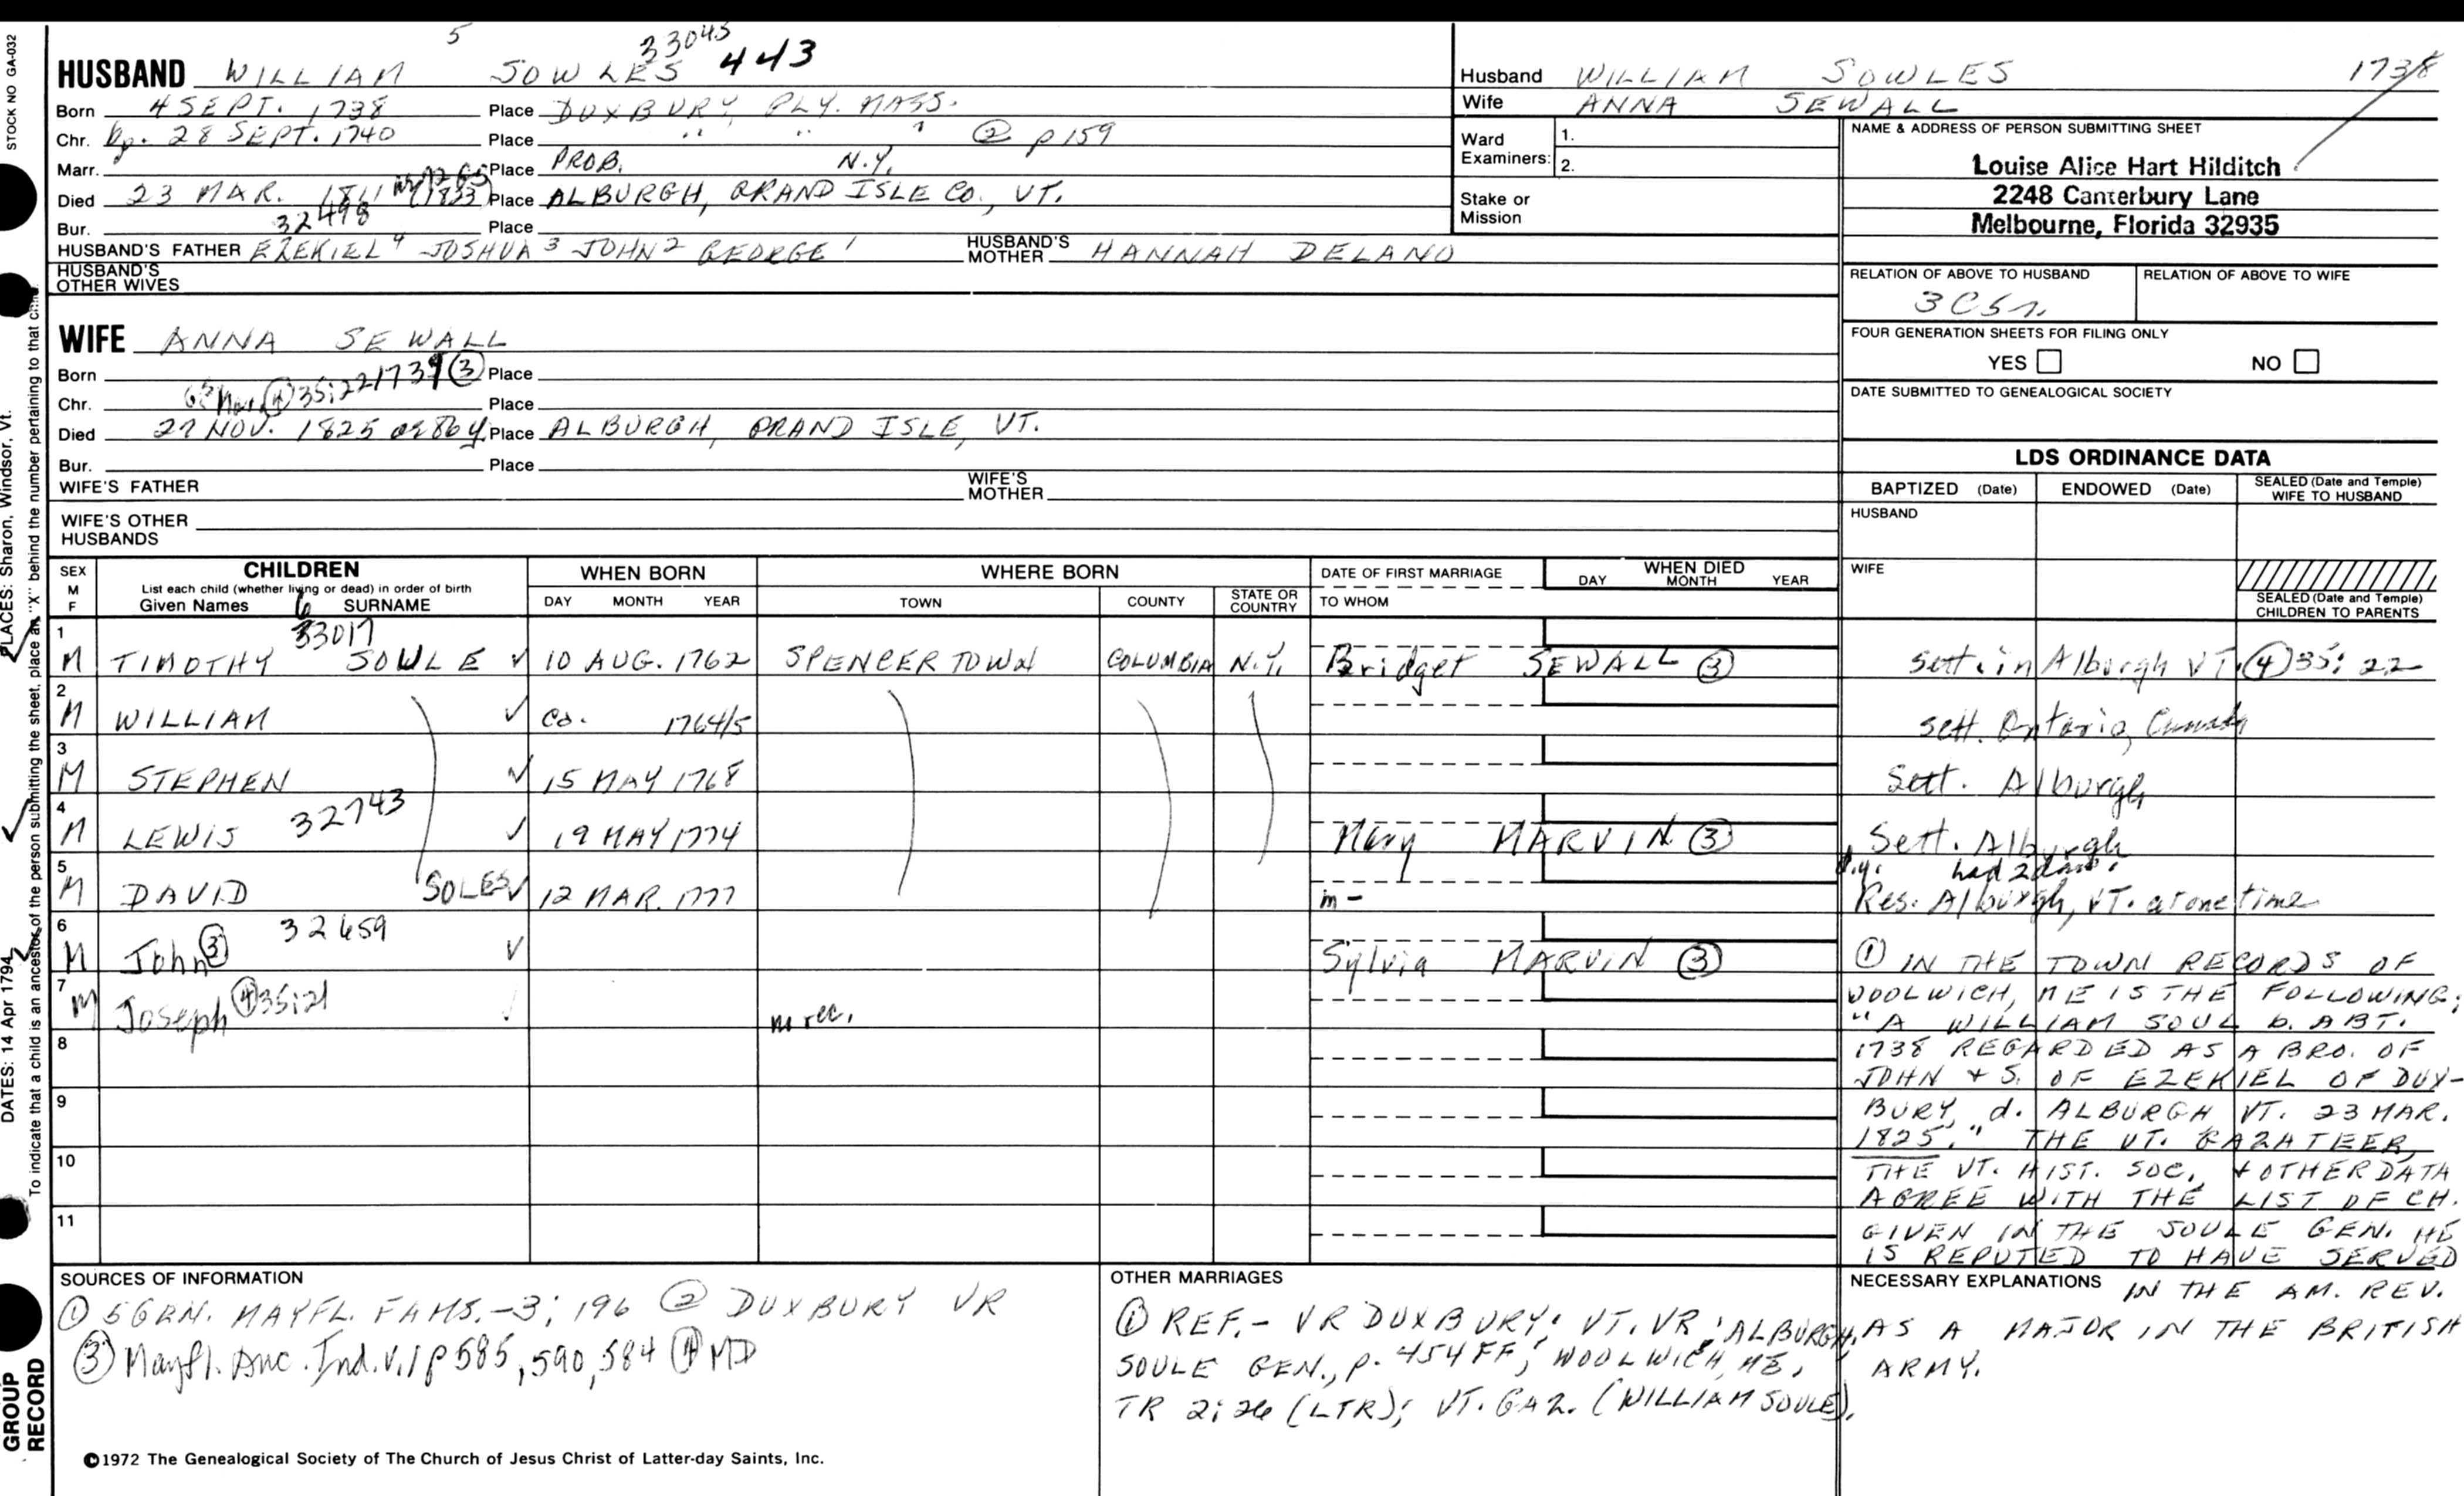 STOCK NO GA-032
5
33043
443
HUSBAND WILLIAM SOWLES
Born 4 SEPT. 1738 Place DUXBURY, PLY. MASS.
Chr. Bp. 28 SEPT. 1740 Place " " " ② p 159
Marr. Place PROB. N.Y.
Died 23 MAR. 1811 (1833) Place ALBURGH, GRAND ISLE CO., VT.
32498
Bur. Place
HUSBAND'S FATHER EZEKIEL 4 JOSHUA 3 JOHN 2 GEORGE 1 HUSBAND'S MOTHER HANNAH DELANO
HUSBAND'S OTHER WIVES
WIFE ANNA SEWALL
Born 1739 ③ Place
Chr. ④ 35:22 Place
Died 27 NOV. 1825 ae 86 y. Place ALBURGH, GRAND ISLE, VT.
Bur. Place
WIFE'S FATHER WIFE'S MOTHER
WIFE'S OTHER HUSBANDS
Husband WILLIAM SOWLES 1738
Wife ANNA SEWALL
Ward Examiners: 1.
2.
Stake or Mission
NAME & ADDRESS OF PERSON SUBMITTING SHEET
Louise Alice Hart Hilditch
2248 Canterbury Lane
Melbourne, Florida 32935
RELATION OF ABOVE TO HUSBAND RELATION OF ABOVE TO WIFE
3C5r.
FOUR GENERATION SHEETS FOR FILING ONLY
YES NO
DATE SUBMITTED TO GENEALOGICAL SOCIETY
LDS ORDINANCE DATA
BAPTIZED (Date) ENDOWED (Date) SEALED (Date and Temple) WIFE TO HUSBAND
HUSBAND
WIFE
SEALED (Date and Temple) CHILDREN TO PARENTS
SEX M F
CHILDREN
List each child (whether living or dead) in order of birth
Given Names 6 SURNAME
WHEN BORN
DAY MONTH YEAR
WHERE BORN
TOWN COUNTY STATE OR COUNTRY
DATE OF FIRST MARRIAGE
TO WHOM
WHEN DIED
DAY MONTH YEAR
1 33017
M TIMOTHY SOWLE ✓ 10 AUG. 1762 SPENCERTOWN COLUMBIA N.Y. Bridget SEWALL ③ Sett. in Alburgh VT. ④ 35: 22
2
M WILLIAM ✓ Ca. 1764/5 sett. Ontario, Canada
3
M STEPHEN ✓ 15 MAY 1768 Sett. Alburgh
4
M LEWIS 32743 ✓ 19 MAY 1774 Mary MARVIN ③ Sett. Alburgh
5
M DAVID SOLES ✓ 12 MAR. 1777 m - d.y. had 2 dau.
Res. Alburgh, VT. at one time
6
M John ③ 32659 ✓ Sylvia MARVIN ③
7
M Joseph ④ 35:21 ✓ m rec.
8
9
10
11
① IN THE TOWN RECORDS OF
WOOLWICH, ME IS THE FOLLOWING;
"A WILLIAM SOUL b. ABT.
1738 REGARDED AS A BRO. OF
JOHN + S. OF EZEKIEL OF DUX-
BURY, d. ALBURGH VT. 23 MAR.
1825." THE VT. GAZATEER,
THE VT. HIST. SOC. + OTHER DATA
AGREE WITH THE LIST OF CH.
GIVEN IN THE SOULE GEN. HE
IS REPUTED TO HAVE SERVED
NECESSARY EXPLANATIONS IN THE AM. REV.
AS A MAJOR IN THE BRITISH
ARMY.
SOURCES OF INFORMATION
① 5 GEN. MAYFL. FAMS. - 3; 196 ② DUXBURY VR
③ Mayfl. Anc. Ind. v.1 p 585, 590, 584 ④ MD
OTHER MARRIAGES
① REF. - VR DUXBURY; VT. VR; ALBURGH,
SOULE GEN., p. 454 FF; WOOLWICH, ME,
TR 2; 26 (LTR); VT. GAZ. (WILLIAM SOULE).
©1972 The Genealogical Society of The Church of Jesus Christ of Latter-day Saints, Inc.
GROUP RECORD
DATES: 14 Apr 1794
PLACES: Sharon, Windsor, Vt.
To indicate that a child is an ancestor of the person submitting the sheet, place an "X" behind the number pertaining to that child.